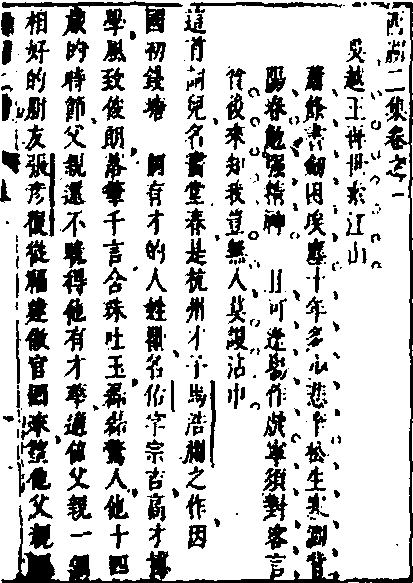 西湖二集卷之一
吳越王再世索江山
蕭條書劍困埃塵十年多少悲辛松生寒澗背
陽春勉強精神 且可逢場作戲寧須對客言
貧後來知我豈無人莫謾沾巾
這首詞兒名畫堂春是杭州才子馬浩瀾之作因
國初錢塘 個有才的人姓瞿名佑字宗吉高才博
學風致俊朗落筆千言含珠吐玉磊磊驚人他十四
歲的時節父親還不曉得他有才華適值父親一個
相好的朋友張彥復從福建做官回來望他父親